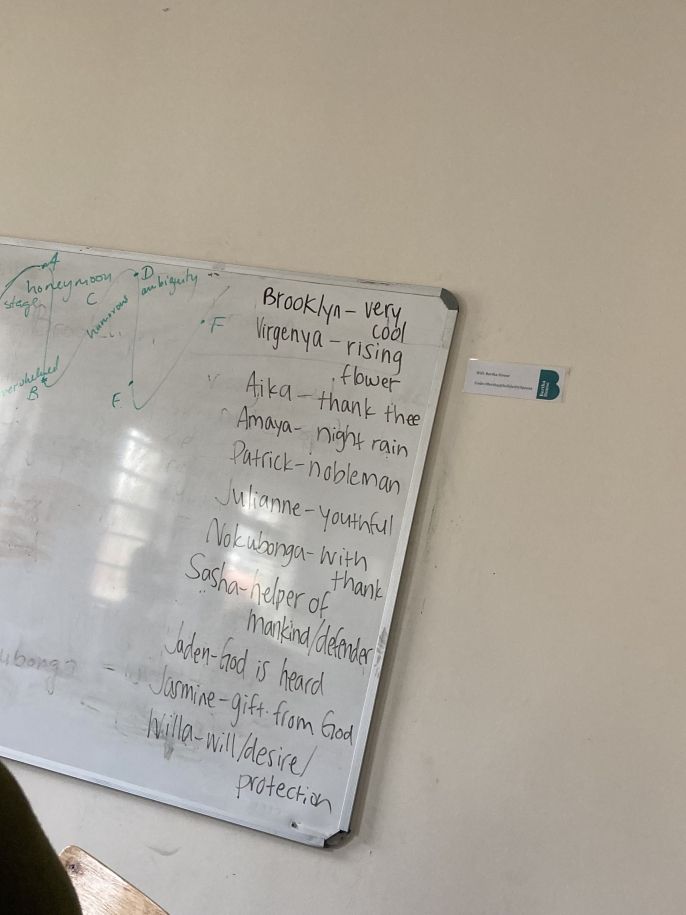 A
honeymoon
stage
C
B
humorous
D
ambiguity
E
F
Brooklyn - very
cool
Virgenya - rising
flower
Aika - thank thee
Amaya - night rain
Patrick - nobleman
Julianne - youthful
Nokubonga - with
thank
Sasha - helper of
mankind/defender
Jaden - God is heard
Jasmine - gift from God
Willa - will/desire/
protection
bertha
house